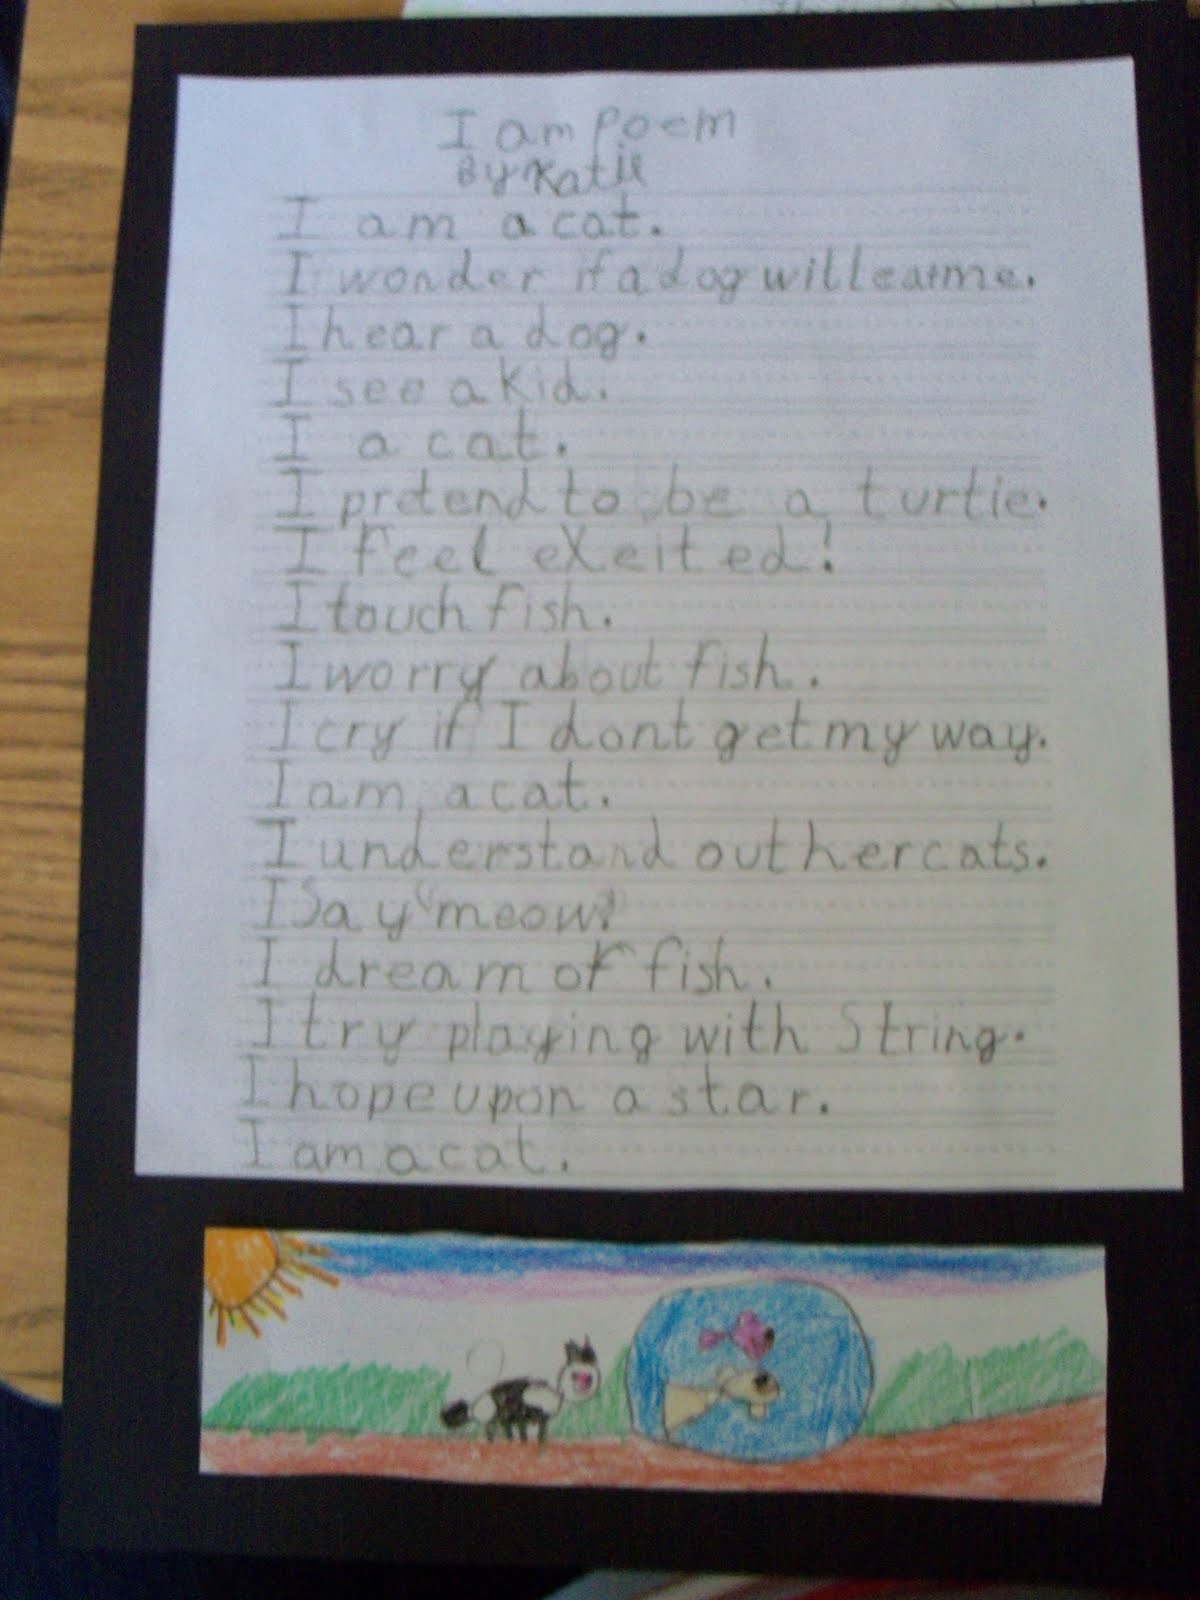 I am Poem
By Katie
I am a cat.
I wonder if a dog will eat me.
I hear a dog.
I see a kid.
I a cat.
I pretend to be a turtle.
I feel exeited!
I touch fish.
I worry about fish.
I cry if I dont get my way.
I am a cat.
I understand outher cats.
I Say "meow."
I dream of fish.
I try playing with String.
I hope upon a star.
I am a cat.